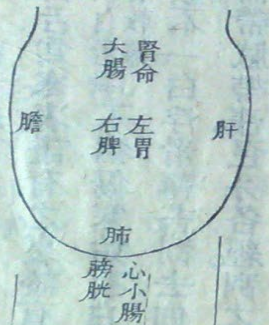 腎命
大腸
肝
左胃
右脾
膽
肺
心小腸
膀胱